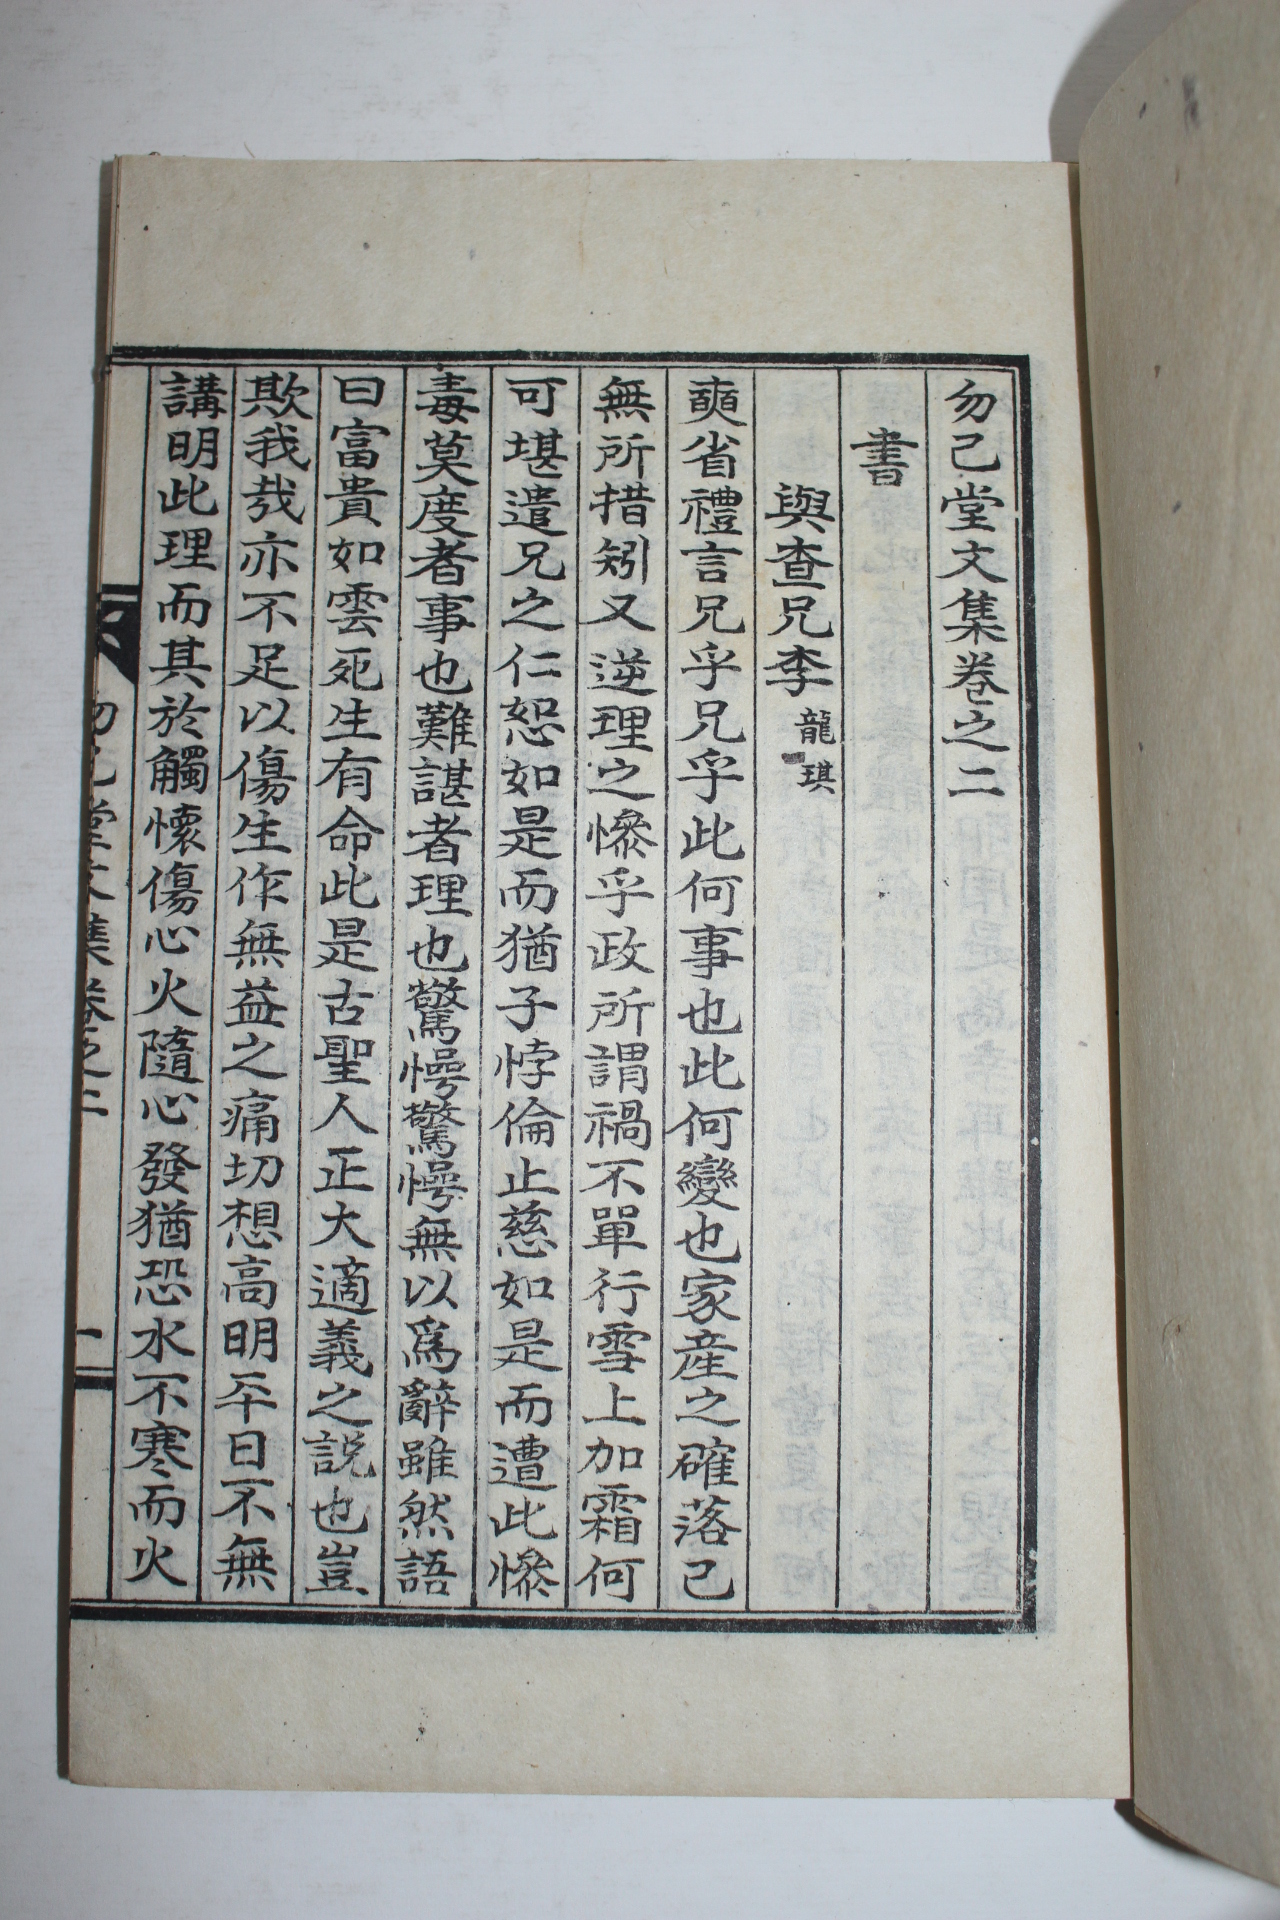 勿己堂文集卷之二
書
與査兄李龍琪
奭省禮言兄乎兄乎此何事也此何變也家産之確落已
無所措矧又逆理之慘乎政所謂禍不單行雪上加霜何
可堪遣兄之仁恕如是而猶子悖倫止慈如是而遭此慘
毒莫度者事也難諶者理也驚愕驚愕無以爲辭雖然語
曰富貴如雲死生有命此是古聖人正大適義之説也豈
欺我哉亦不足以傷生作無益之痛切想高明平日不無
講明此理而其於觸懷傷心火隨心發猶恐水不寒而火
勿己堂文集卷之二 一